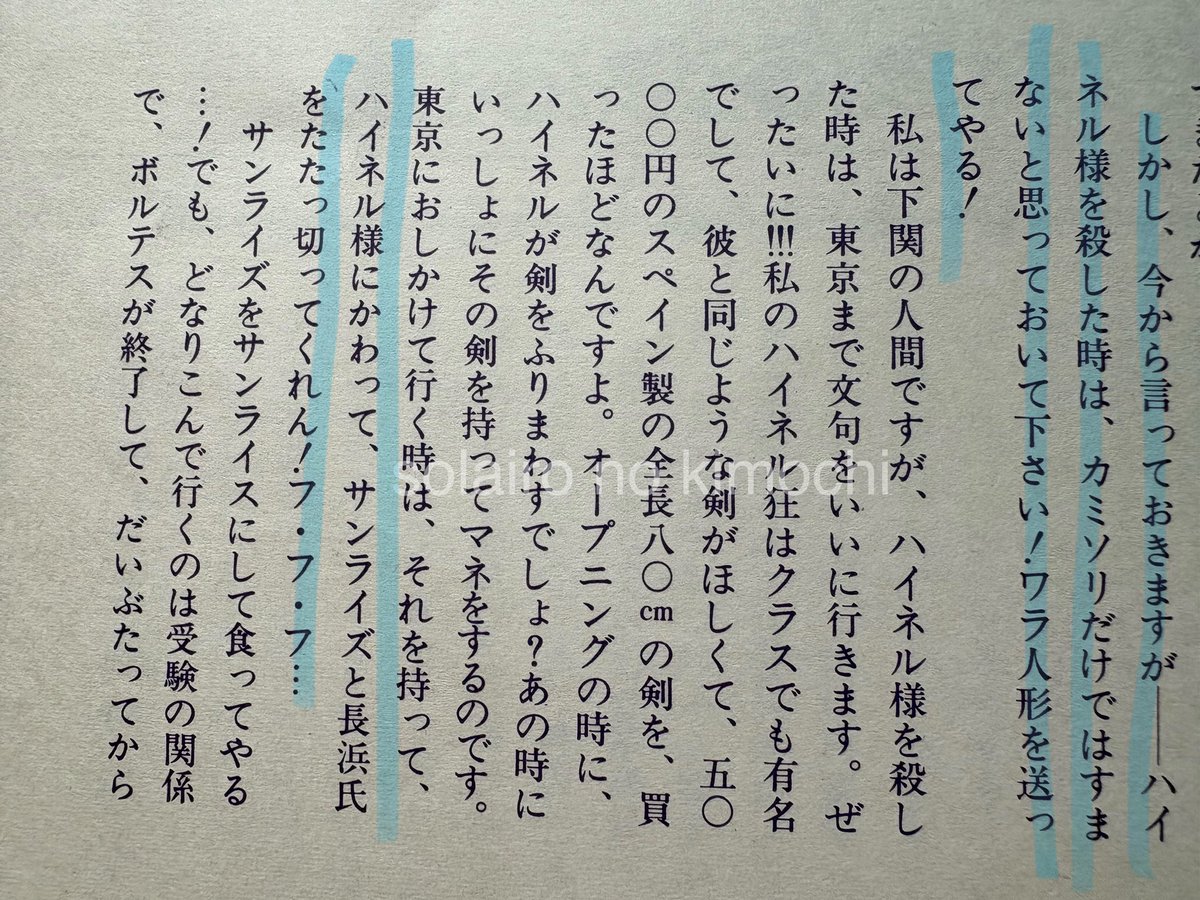 しかし、今から言っておきますが――ハイ
ネル様を殺した時は、カミソリだけではすま
ないと思っておいて下さい！ワラ人形を送っ
てやる！
私は下関の人間ですが、ハイネル様を殺し
た時は、東京まで文句をいいに行きます。ぜ
ったいに!!!私のハイネル狂はクラスでも有名
でして、彼と同じような剣がほしくて、五〇
〇〇円のスペイン製の全長八〇cmの剣を、買
ったほどなんですよ。オープニングの時に、
ハイネルが剣をふりまわすでしょ？あの時に
いっしょにその剣を持ってマネをするのです。
東京におしかけて行く時は、それを持って、
ハイネル様にかわって、サンライズと長浜氏
をたたっ切ってくれん！フ・フ・フ…
サンライズをサンライスにして食ってやる
…！でも、どなりこんで行くのは受験の関係
で、ボルテスが終了して、だいぶたってから
solairo no kimochi